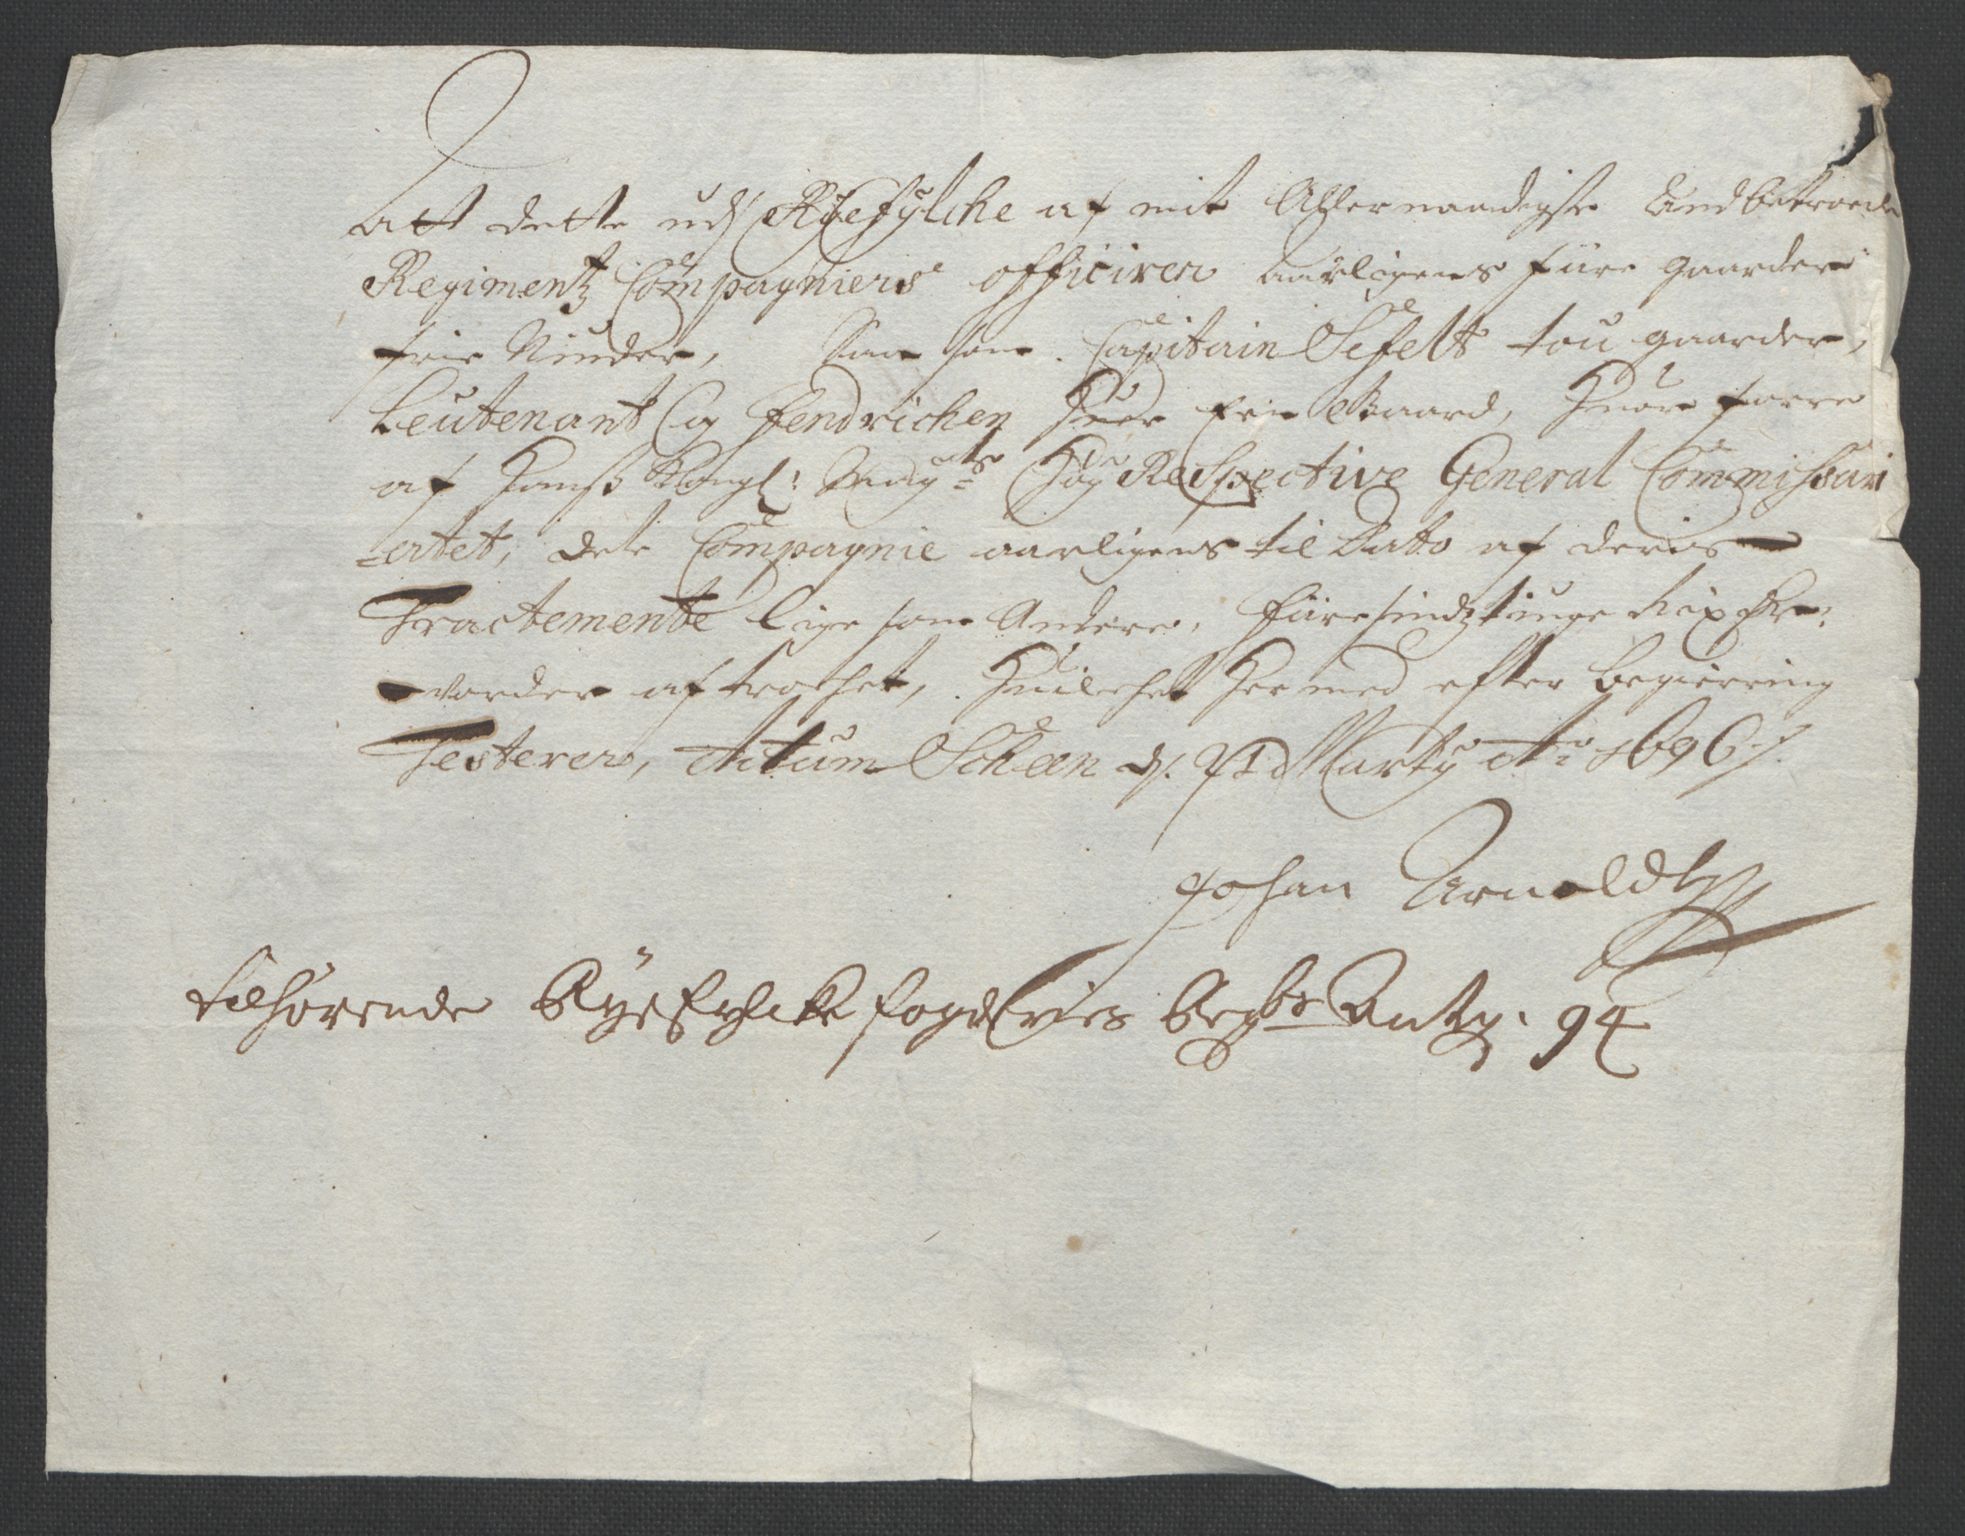 Att dette udj Ryefylche af mit Allernaadigste Andbetroede
Regimentz Compagniers officirer aarligens fiire gaarder
frie Niuder, Saa som Capitain Sefelt tou gaarder,
Leutenant og Fendrichen Huer Een Gaard, Huor forre
af Hanß Kongl: May:ts Høy Respective General Commissari
-atet, dete Compagnie aarligens til Dato af deris
Tractemente lige som Andere, fiiresindztiuge Rixdlr:
vorder aftrochet, Huilchet Hermed efter begiering
Testerer, Actum Scheen d. 21 Marty Ao 1696.
Johan Arnoldt
Tilhørende Ryefylche fogderies Regbr Antg. 94